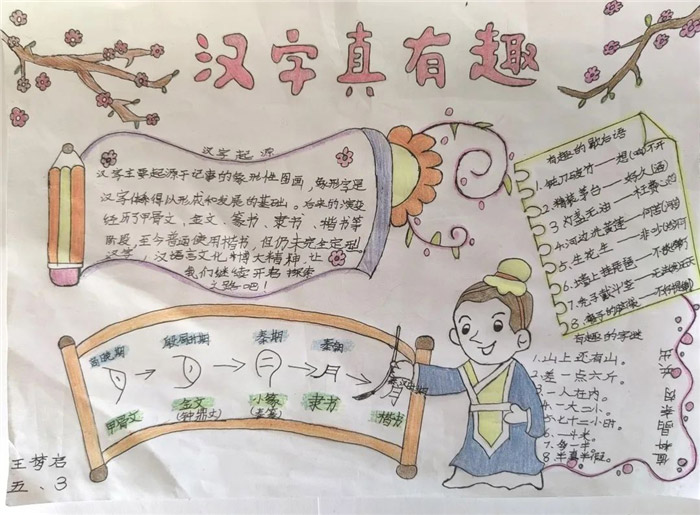 汉字真有趣
汉字起源
汉字主要起源于记事的象形性图画，象形字是
汉字体系得以形成和发展的基础。后来的演变
经历了甲骨文、金文、篆书、隶书、楷书等
阶段，至今普遍使用楷书，但仍未完全定型。
汉字，汉语言文化博大精神，让
我们继续开启探索
之路吧！
有趣的歇后语
1.钝刀破竹——想(响)不开
2.精装茅台——好久(酒)
3.灯盏无油——枉费心
4.河边洗黄莲——何苦
5.生花生——非
6.墙上挂琵琶——不
7.兔子戴斗笠
8.
有趣的字谜
1.山上还有山。 出
2.差一点六斤。 兵
3.一人在内。 肉
4.一大二小。 奈
5.七十二小时。 晶
6.
7.多一半。 夕
8.半真半假。 值
商晚期
殷周时期
秦朝
甲骨文
金文
(钟鼎文)
小篆
(秦篆)
隶书
楷书
王梦启
五、3